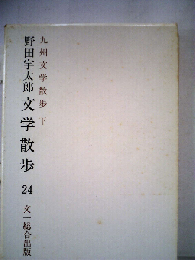 九州文学散歩 下
野田宇太郎 文学散歩 24 文一総合出版